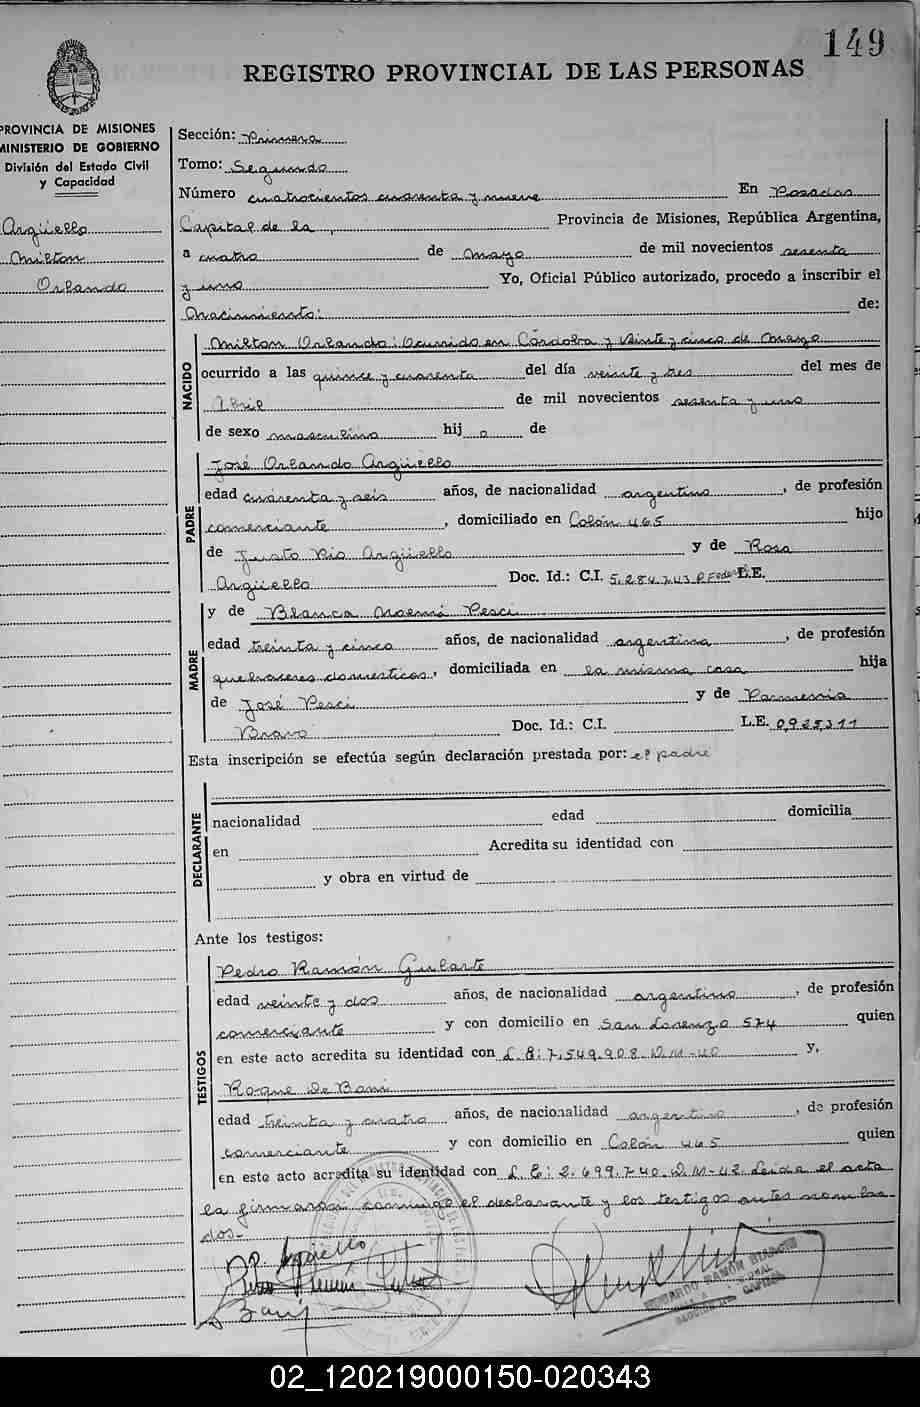 149
REGISTRO PROVINCIAL DE LAS PERSONAS
PROVINCIA DE MISIONES
MINISTERIO DE GOBIERNO
División del Estado Civil
y Capacidad
Argüello
Milton
Orlando
Sección: Primera
Tomo: Segundo
Número cuatrocientos cuarenta y nueve En Posadas
Capital de la , Provincia de Misiones, República Argentina,
a cuatro de mayo de mil novecientos sesenta
y uno Yo, Oficial Público autorizado, procedo a inscribir el
Nacimiento: de:
NACIDO
Milton Orlando: Ocurrido en Córdoba y Veinte y cinco de Mayo
ocurrido a las quince y cuarenta del día veinte y tres del mes de
Abril de mil novecientos sesenta y uno
de sexo masculino hij o de
PADRE
José Orlando Argüello
edad cuarenta y seis años, de nacionalidad argentino, de profesión
comerciante, domiciliado en Colón 465 hijo
de Justo Pio Argüello y de Rosa
Argüello Doc. Id.: C.I. 5.284.743 P. Federal L.E.
MADRE
y de Blanca Noemí Pesci
edad treinta y cinco años, de nacionalidad argentina, de profesión
quehaceres domesticos, domiciliada en la misma casa hija
de José Pesci y de Parmenia
Bravo Doc. Id.: C.I. L.E. 0,925,311
Esta inscripción se efectúa según declaración prestada por: el padre
DECLARANTE
nacionalidad edad domicilia
en Acredita su identidad con
y obra en virtud de
Ante los testigos:
TESTIGOS
Pedro Ramón Gularte
edad veinte y dos años, de nacionalidad argentino, de profesión
comerciante y con domicilio en San Lorenzo 574 quien
en este acto acredita su identidad con L.E: 7.549.908. D.M-40 y,
Roque De Bani
edad treinta y cuatro años, de nacionalidad argentino, de profesión
comerciante y con domicilio en Colón 465 quien
en este acto acredita su identidad con L.E: 2.699.740. D.M-42. Leida el acta
la firmaron conmigo el declarante y los testigos antes nombra
dos.-
Argüello
02_120219000150-020343